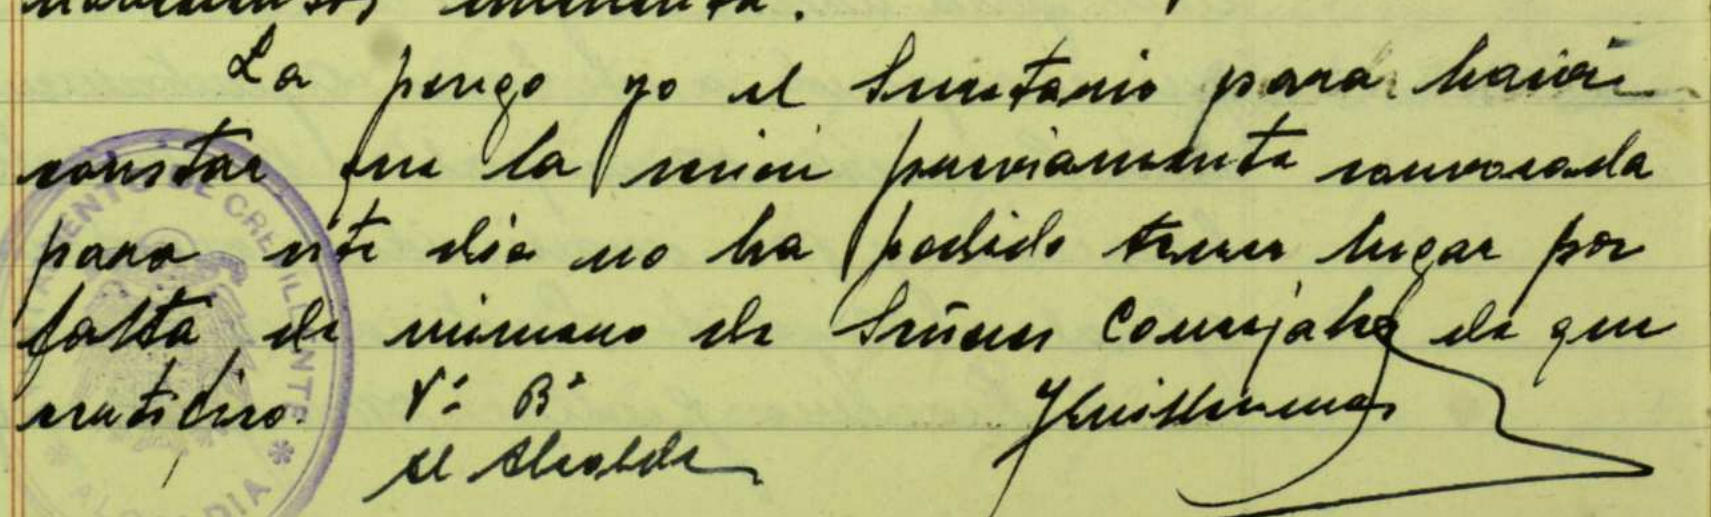 novecientos cincuenta.
La pongo yo el Secretario para hacer
constar que la sesion previamente convocada
para este dia no ha podido tener lugar por
falta de número de Señores Concejales de que
certifico.
Vº Bº
el Alcalde
AYUNTAMIENTO DE CREVILLENTE * ALCALDIA *